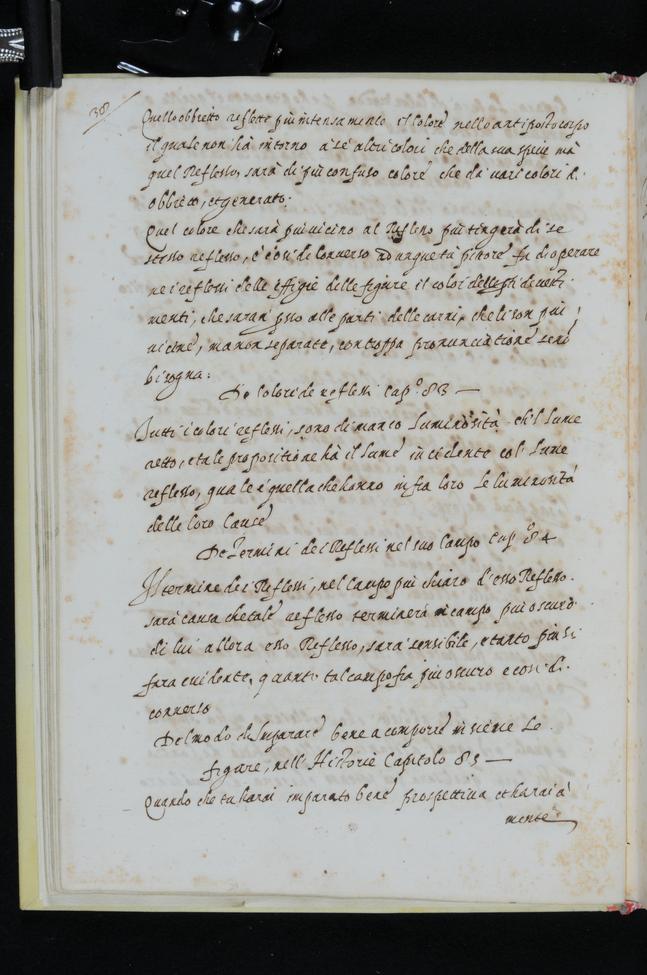 38
Quello obbietto reflette più intensamente il colore nello antiposto corpo
il quale non hà intorno a se altri colori che della sua specie mà
quel Reflesso, sarà di più confuso colore che da vari colori d.
obbietti, e generato.
Quel colore che sarà più vicino al Reflesso più tingerà di se
stesso reflesso, e così di converso adunque tù pittore fa di operare
ne i reflessi delle effigie delle figure il colore delle parti de vesti
menti, che saran presso alle parti delle carni, che li son più
vicine, ma non separate, con troppa pronunciatione se nõ
bisogna:
De Colori de reflessi Cap.º 83 —
Tutti i colori reflessi, sono di manco Luminosità ch'l lume
retto, e tale propositione hà il lume incidente col lume
reflesso, quale è quella che hanno infra loro le luminosità
delle loro Cause
De Termini de i Reflessi nel suo Campo Cap.º 84
Il termine de i Reflessi, nel campo più chiaro d'esso Reflesso.
sarà causa che tale reflesso terminerà in campo più oscuro
di lui allora esso Reflesso, sarà sensibile, e tanto più si
fara evidente, quanto tal campo fia più oscuro e così di
converso
Del modo che Imparare bene a comporre insieme le
figure, nell'Historie Capitolo 85 —
Quando che tu harai imparato bene prospettiva et harai à
mente